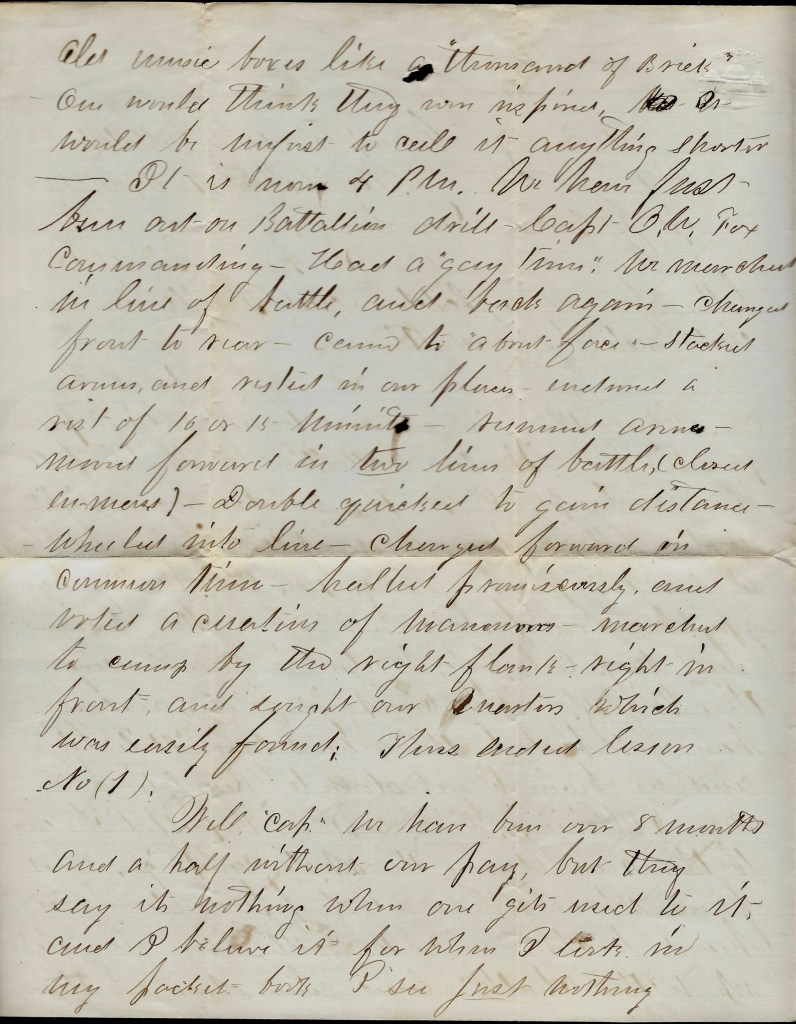 old music boxes like a "thousand of Brick"
One would think they were inspired, it
would be unjust to call it anything shorter
— It is now 4 P.M. We have just
been out on Battallion drill - Capt Fox
Commanding - Had a "gay time". We marched
in line of battle, and back again - changed
front to rear - came to "about face" - stacked
arms, and rested in our places - endured a
rest of 10 or 15 minutes - resumed arms -
moved forward in two lines of battle, (closed
en-mass) - Double quicked to gain distance -
wheeled into line - charged forward in
common time - halted promiscuously, and
voted a cessation of maneuvers - marched
to camp by the right flank - right in
front, and sought our Quarters which
was easily found; Thus ended lesson
No (1).
Well "cap" we have been over 8 months
and a half without our pay, but they
say its nothing when one gits used to it,
and I believe it for when I look in
my pocket-book I see just nothing